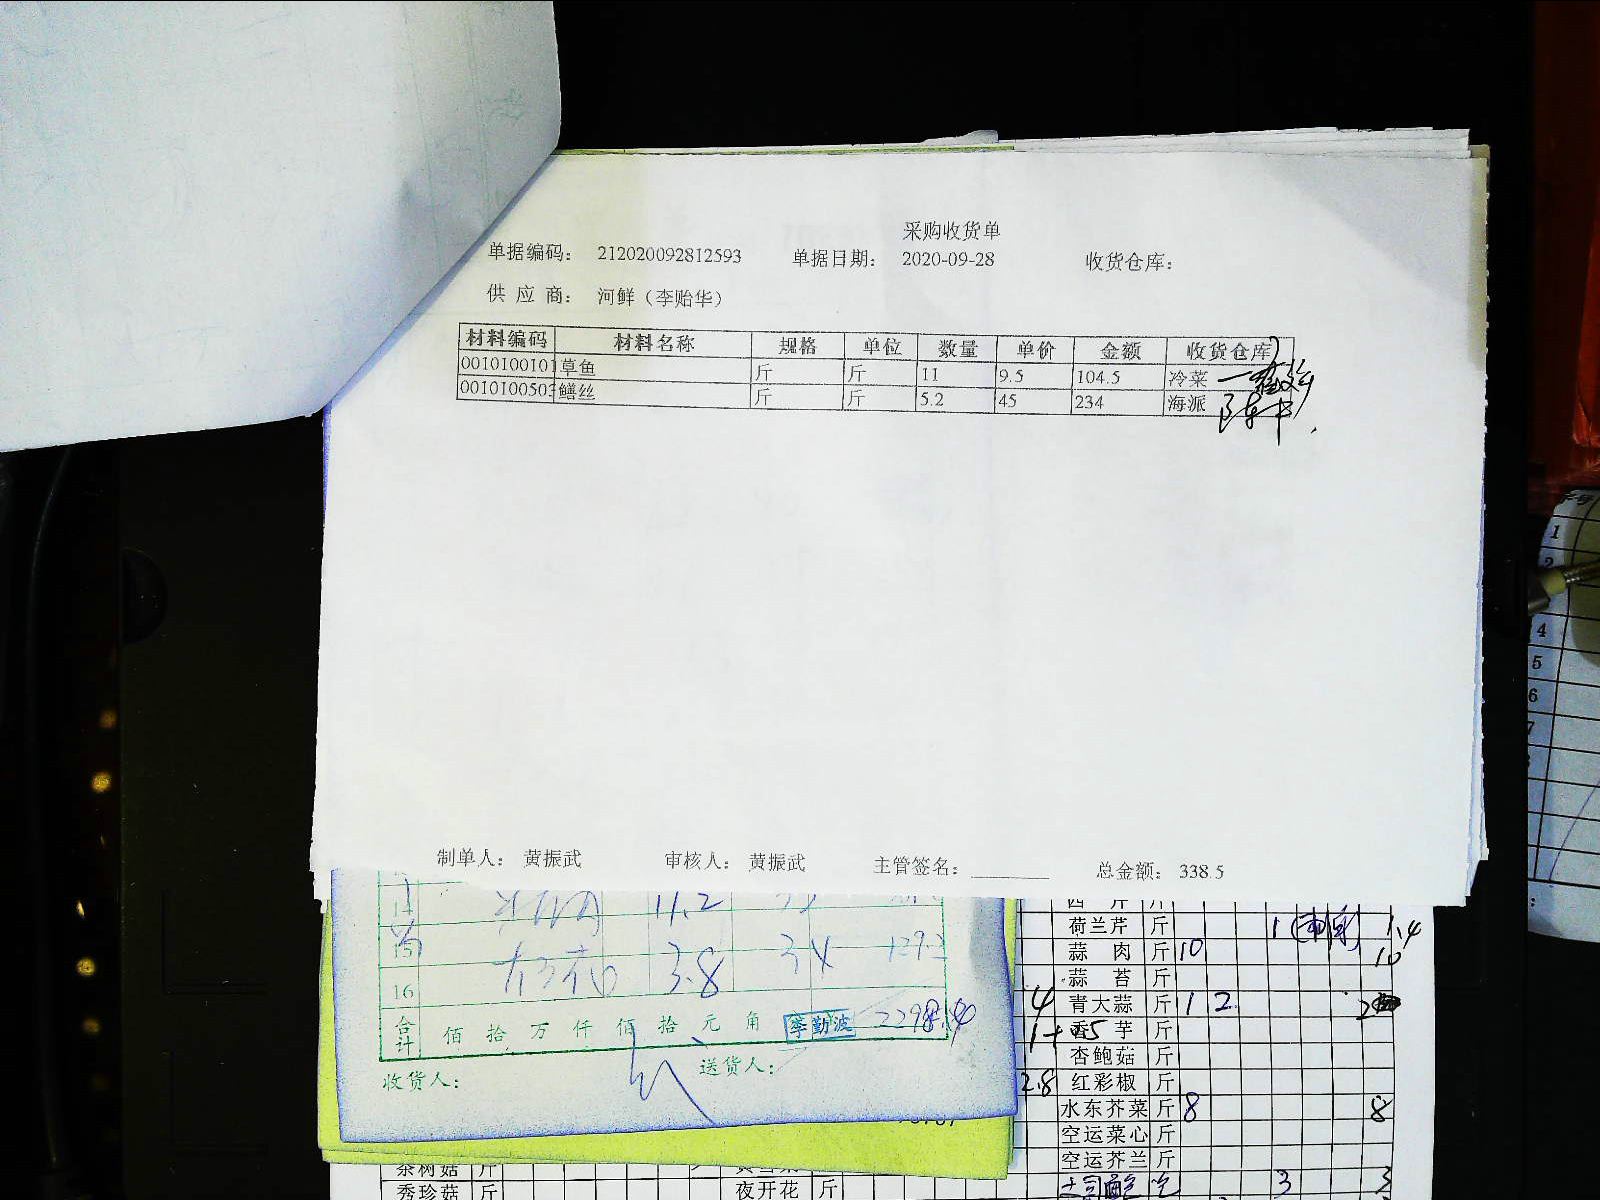 采购收货单
单据编码： 212020092812593 单据日期： 2020-09-28 收货仓库：
供 应 商： 河鲜（李贻华）
材料编码 材料名称 规格 单位 数量 单价 金额 收货仓库
001010010 草鱼 斤 斤 11 9.5 104.5 冷菜
001010050 鳝丝 斤 斤 5.2 45 234 海派
制单人： 黄振武 审核人： 黄振武 主管签名： 总金额： 338.5
14 11.2
15 3.8 34 129.2
16
合计 佰 拾 万 仟 佰 拾 元 角 李勤波 2298.4
收货人： 送货人：
西 芹 斤
荷兰芹 斤 1 1.4
蒜 肉 斤 10 10
蒜 苔 斤
4 青大蒜 斤 1 2
香 芋 斤
杏鲍菇 斤
2.8 红彩椒 斤
水东芥菜 斤 8 8
空运菜心 斤
空运芥兰 斤
3 3
茶树菇 斤
秀珍菇 斤 夜开花 斤
1
2
4
5
6
7